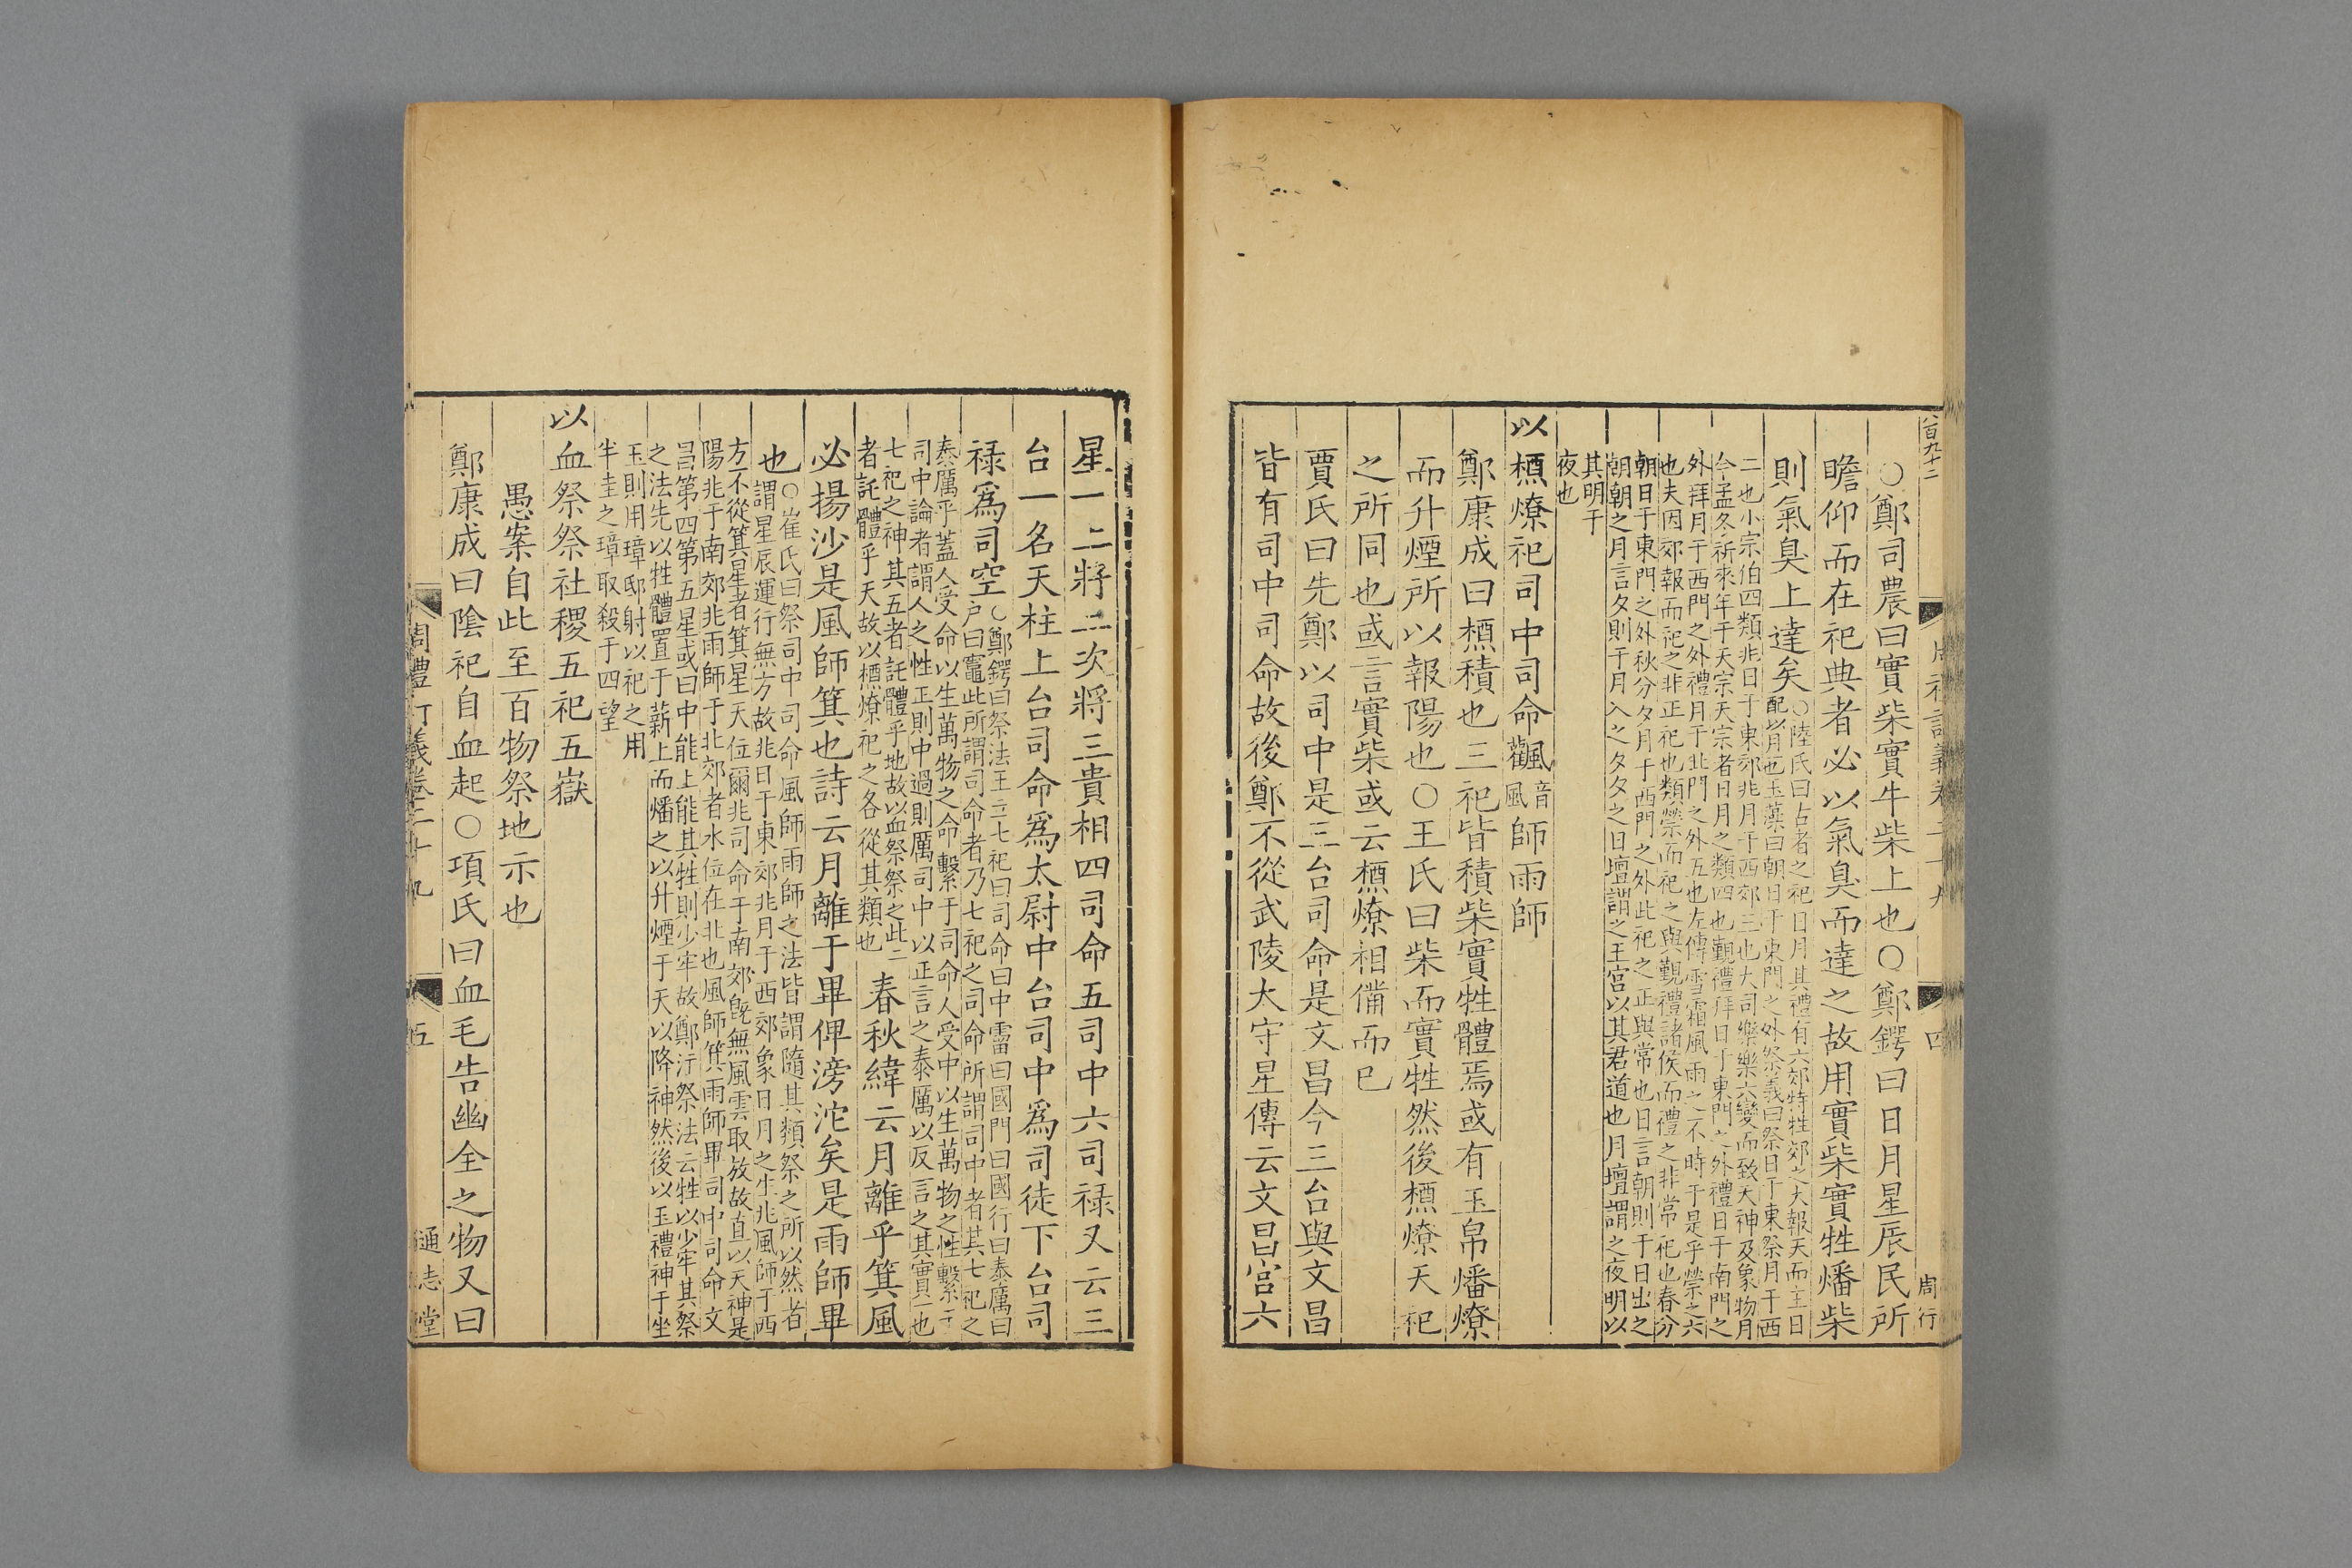 ○鄭司農曰實柴實牛柴上也○鄭鍔曰日月星辰民所
瞻仰而在祀典者必以氣臭而達之故用實柴實牲燔柴
則氣臭上達矣
○陸氏曰古者之祀日月其禮有六郊特牲郊之大報天而主日
配以月一也玉藻曰朝日于東門之外祭義曰祭日于東祭月于西
二也小宗伯四類兆日于東郊兆月于西郊三也大司樂樂六變而致天神及象物月
令孟冬祈來年于天宗天宗者日月之類四也覲禮拜日于東門之外禮日于南門之
外拜月于西門之外禮月于北門之外五也左傳雪霜風雨之不時于是乎禜之六
也夫因郊報而祀之非正祀也類禜而祀之與覲禮諸侯而禮之非常祀也春分
朝日于東門之外秋分夕月于西門之外此祀之正與常也日言朝則于日出之
朝朝之月言夕則于月入之夕夕之日壇謂之王宮以其君道也月壇謂之夜明以
其明于
夜也
以槱燎祀司中司命飌
音
風
師雨師
鄭康成曰槱積也三祀皆積柴實牲體焉或有玉帛燔燎
而升煙所以報陽也○王氏曰柴而實牲然後槱燎天祀
之所同也或言實柴或云槱燎相備而已
賈氏曰先鄭以司中是三台司命是文昌今三台與文昌
皆有司中司命故後鄭不從武陵大守星傳云文昌宮六
百九十二
周禮訂義卷二十九
四
周行
星一上將二次將三貴相四司命五司中六司祿又云三
台一名天柱上台司命爲太尉中台司中爲司徒下台司
祿爲司空
○鄭鍔曰祭法王立七祀曰司命曰中霤曰國門曰國行曰泰厲曰
户曰竈此所謂司命者乃七祀之司命所謂司中者其七祀之
泰厲乎蓋人受命以生萬物之命繫于司命人受中以生萬物之性繫于
司中論者謂人之性正則中過則厲司中以正言之泰厲以反言之其實一也
七祀之神其五者託體乎地故以血祭祭之此二
者託體乎天故以槱燎祀之各從其類也
春秋緯云月離乎箕風
必揚沙是風師箕也詩云月離于畢俾滂沱矣是雨師畢
也
○崔氏曰祭司中司命風師雨師之法皆謂隨其類祭之所以然者
謂星辰運行無方故兆日于東郊兆月于西郊象日月之生兆風師于西
方不從箕星者箕星天位爾兆司命于南郊旣無風雲取放故直以天神是
陽兆于南郊兆雨師于北郊者水位在北也風師箕雨師畢司中司命文
昌第四第五星或曰中能上能其牲則少牢故鄭注祭法云牲以少牢其祭
之法先以牲體置于薪上而燔之以升煙于天以降神然後以玉禮神于坐
玉則用璋邸射以祀之用
半圭之璋取殺于四望
以血祭祭社稷五祀五嶽
愚案自此至百物祭地示也
鄭康成曰隂祀自血起○項氏曰血毛告幽全之物又曰
周禮訂義卷二十九
五
通志堂